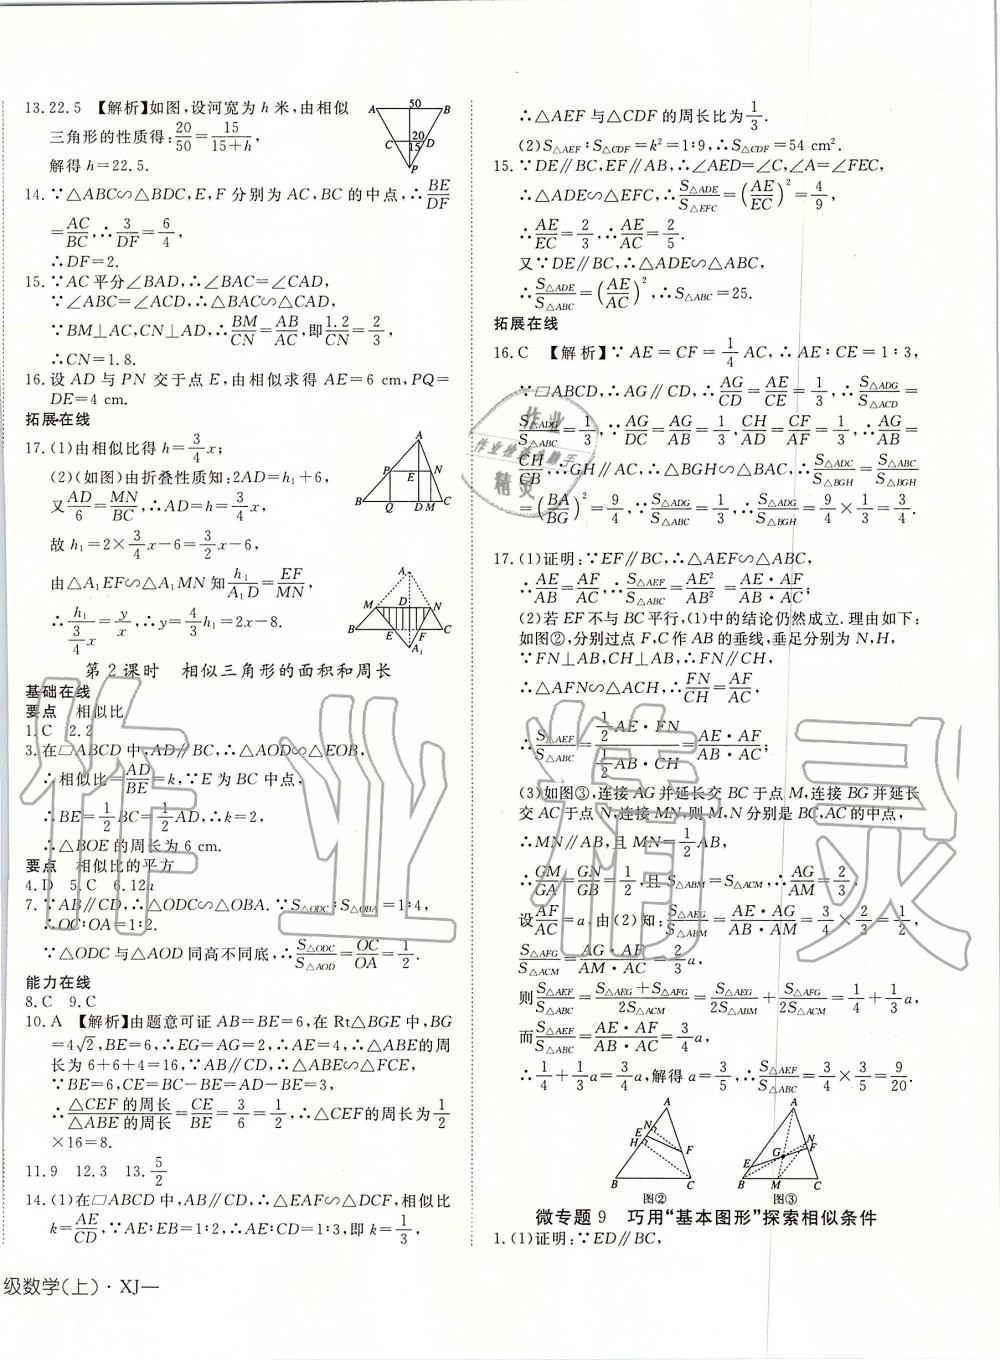 13.22.5 【解析】如图,设河宽为 h 米,由相似
三角形的性质得:20/50=15/(15+h),
解得 h=22.5.
14.∵△ABC∽△BDC,E,F 分别为 AC,BC 的中点,∴BE/DF
=AC/BC,∴3/DF=6/4,
∴DF=2.
15.∵AC 平分∠BAD,∴∠BAC=∠CAD,
∵∠ABC=∠ACD,∴△BAC∽△CAD,
∵BM⊥AC,CN⊥AD,∴BM/CN=AB/AC,即1.2/CN=2/3,
∴CN=1.8.
16.设 AD 与 PN 交于点 E,由相似求得 AE=6 cm,PQ=
DE=4 cm.
拓展在线
17.(1)由相似比得 h=3/4x;
(2)(如图)由折叠性质知:2AD=h₁+6,
又AD/6=MN/BC,∴AD=h=3/4x,
故 h₁=2×3/4x-6=3/2x-6,
由△A₁EF∽△A₁MN 知h₁/A₁D=EF/MN,
∴h₁/(3/4x)=y/x,∴y=4/3h₁=2x-8.
第 2 课时 相似三角形的面积和周长
基础在线
要点 相似比
1.C 2.2
3.在□ABCD 中,AD∥BC,∴△AOD∽△EOB,
∴相似比=AD/BE=k,∵E 为 BC 中点,
∴BE=1/2BC=1/2AD,∴k=2,
∴△BOE 的周长为 6 cm.
要点 相似比的平方
4.D 5.C 6.12a
7.∵AB∥CD,∴△ODC∽△OBA.∵S△ODC∶S△OBA=1∶4,
∴OC∶OA=1∶2.
∵△ODC 与△AOD 同高不同底,∴S△ODC/S△AOD=OC/OA=1/2.
能力在线
8.C 9.C
10.A 【解析】由题意可证 AB=BE=6,在 Rt△BGE 中,BG
=4√2,BE=6,∴EG=AG=2,∴AE=4,∴△ABE的周
长为 6+6+4=16,∵AB∥CD,∴△ABE∽△FCE,
∵BE=6,CE=BC-BE=AD-BE=3,
∴△CEF 的周长/△ABE 的周长=CE/BE=3/6=1/2,∴△CEF的周长为1/2
×16=8.
11.9 12.3 13.5/2
14.(1)在□ABCD 中,AB∥CD,∴△EAF∽△DCF,相似比
k=AE/CD,∵AE∶EB=1∶2,∴AE∶CD=1∶3,即 k=1/3,
级数学(上)·XJ—
∴△AEF 与△CDF 的周长比为1/3.
(2)S△AEF∶S△CDF=k²=1∶9,∴S△CDF=54 cm².
15.∵DE∥BC,EF∥AB,∴∠AED=∠C,∠A=∠FEC,
∴△ADE∽△EFC,∴S△ADE/S△EFC=(AE/EC)²=4/9,
∴AE/EC=2/3,∴AE/AC=2/5.
又∵DE∥BC,∴△ADE∽△ABC,
∴S△ADE/S△ABC=(AE/AC)²,∴S△ABC=25.
拓展在线
16.C 【解析】∵AE=CF=1/4AC,∴AE∶CE=1∶3,
∵□ABCD,∴AG∥CD,∴AG/CD=AE/CE=1/3,∴S△ADG/S△ACD=
S△ADG/S△ABC=1/3,∵AG/DC=AG/AB=1/3,CH/AD=CF/AF=1/3,∴AG/AB=
CH/CB,∴GH∥AC,∴△BGH∽△BAC,∴S△ADC/S△BGH=S△ABC/S△BGH
=(BA/BG)²=9/4,∵S△ADG/S△ABC=1/3,∴S△ADG/S△BGH=9/4×1/3=3/4.
17.(1)证明:∵EF∥BC,∴△AEF∽△ABC,
∴AE/AB=AF/AC,∴S△AEF/S△ABC=AE²/AB²=AE·AF/AB·AC;
(2)若 EF 不与 BC 平行,(1)中的结论仍然成立.理由如下:
如图②,分别过点 F,C 作 AB 的垂线,垂足分别为 N,H,
∵FN⊥AB,CH⊥AB,∴FN∥CH,
∴△AFN∽△ACH,∴FN/CH=AF/AC,
∴S△AEF/S△ABC=(1/2AE·FN)/(1/2AB·CH)=AE·AF/AB·AC;
(3)如图③,连接 AG 并延长交 BC 于点 M,连接 BG 并延长
交 AC 于点 N,连接 MN,则 M,N 分别是 BC,AC 的中点,
∴MN∥AB,且 MN=1/2AB,
∴GM/GA=GN/GB=1/2,且 S△ABM=S△ACM,∴AG/AM=2/3.
设AF/AC=a,由(2)知:S△AEG/S△ABM=AE·AG/AB·AM=3/4×2/3=1/2,
S△AFG/S△ACM=AG·AF/AM·AC=2/3a,
则S△AEF/S△ABC=(S△AEG+S△AFG)/2S△ACM=S△AEG/2S△ABM+S△AFG/2S△ACM=1/4+1/3a,
而S△AEF/S△ABC=AE·AF/AB·AC=3/4a,
∴1/4+1/3a=3/4a,解得 a=3/5,∴S△AEF/S△ABC=3/4×3/5=9/20.
图② 图③
微专题 9 巧用“基本图形”探索相似条件
1.(1)证明:∵ED∥BC,
作业精灵
作业
作业检查小助手
精灵